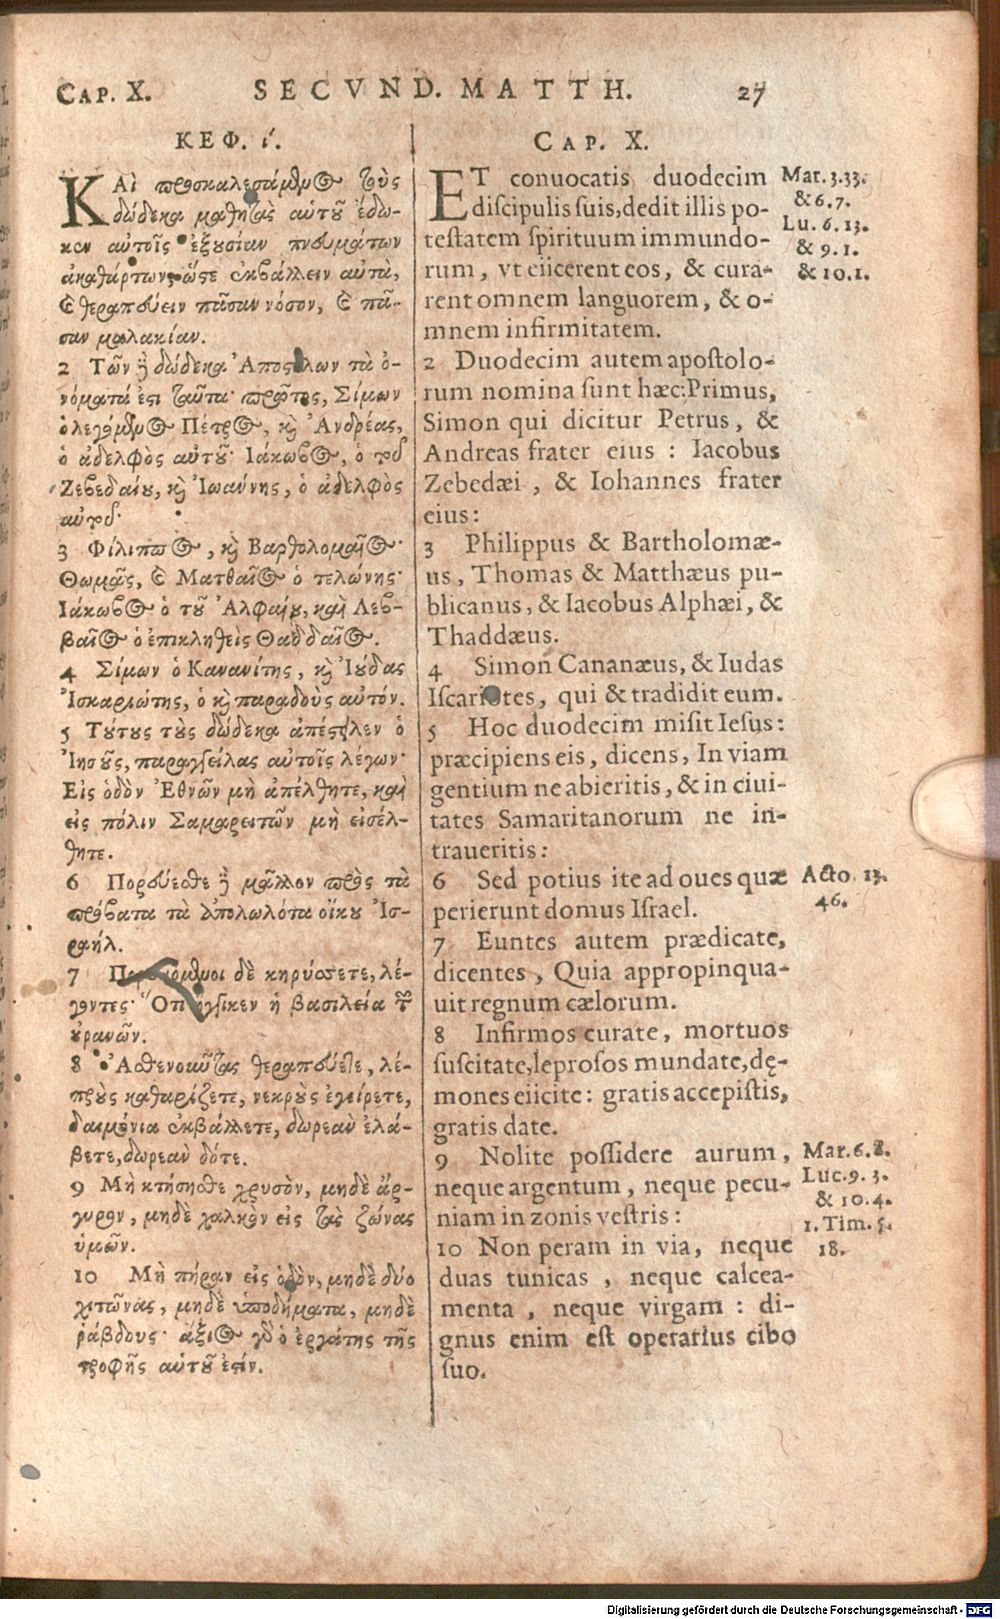 CAP. X. SECVND. MATTH. 27
ΚΕΦ. ί.
ΚΑὶ προσκαλεσάμενος τοὺς
δώδεκα μαθητὰς αὑτοῦ ἔδω-
κεν αὐτοῖς ἐξουσίαν πνευμάτων
ἀκαθάρτων, ὥστε ἐκβάλλειν αὐτὰ,
καὶ θεραπεύειν πᾶσαν νόσον, καὶ πᾶ-
σαν μαλακίαν.
2 Τῶν δὲ δώδεκα Ἀποστόλων τὰ ὀ-
νόματά ἐστι ταῦτα· πρῶτος, Σίμων
ὁ λεγόμενος Πέτρος, καὶ Ἀνδρέας,
ὁ ἀδελφὸς αὐτοῦ· Ιάκωβος, ὁ τοῦ
Ζεβεδαίου, καὶ Ἰωάννης, ὁ ἀδελφὸς
αὐτοῦ·
3 Φίλιππος, καὶ Βαρθολομαῖος·
Θωμᾶς, καὶ Ματθαῖος ὁ τελώνης·
Ιάκωβος ὁ τοῦ Ἀλφαίου, καὶ Λεβ-
βαῖος ὁ ἐπικληθεὶς Θαδδαῖος.
4 Σίμων ὁ Κανανίτης, καὶ Ἰούδας
Ἰσκαριώτης, ὁ καὶ παραδοὺς αὐτόν.
5 Τούτους τοὺς δώδεκα ἀπέστειλεν ὁ
Ἰησοῦς, παραγγείλας αὐτοῖς λέγων·
Εἰς ὁδὸν Ἐθνῶν μὴ ἀπέλθητε, καὶ
εἰς πόλιν Σαμαρειτῶν μὴ εἰσέλ-
θητε.
6 Πορεύεσθε δὲ μᾶλλον πρὸς τὰ
πρόβατα τὰ ἀπολωλότα οἴκου Ἰσ-
ραήλ.
7 Πορευόμενοι δὲ κηρύσσετε, λέ-
γοντες· Ὅτι ἤγγικεν ἡ βασιλεία τῶν
οὐρανῶν.
8 Ἀσθενοῦντας θεραπεύετε, λέ-
προὺς καθαρίζετε, νεκροὺς ἐγείρετε,
δαιμόνια ἐκβάλλετε, δωρεὰν ἐλά-
βετε, δωρεὰν δότε.
9 Μὴ κτήσησθε χρυσὸν, μηδὲ ἄρ-
γυρον, μηδὲ χαλκὸν εἰς τὰς ζώνας
ὑμῶν.
10 Μὴ πήραν εἰς ὁδὸν, μηδὲ δύο
χιτῶνας, μηδὲ ὑποδήματα, μηδὲ
ράβδους· ἄξιος γὰρ ὁ ἐργάτης τῆς
τροφῆς αὑτοῦ ἐστίν.
CAP. X.
ET conuocatis duodecim
discipulis suis, dedit illis po-
testatem spirituum immundo-
rum, vt eiicerent eos, & cura-
rent omnem languorem, & o-
mnem infirmitatem.
2 Duodecim autem apostolo-
rum nomina sunt hæc: Primus,
Simon qui dicitur Petrus, &
Andreas frater eius: Iacobus
Zebedæi, & Iohannes frater
eius:
3 Philippus & Bartholomæ-
us, Thomas & Matthæus pu-
blicanus, & Iacobus Alphæi, &
Thaddæus.
4 Simon Cananæus, & Iudas
Iscariotes, qui & tradidit eum.
5 Hoc duodecim misit Iesus:
præcipiens eis, dicens, In viam
gentium ne abieritis, & in ciui-
tates Samaritanorum ne in-
traueritis:
6 Sed potius ite ad oues quæ
perierunt domus Israel.
7 Euntes autem prædicate,
dicentes, Quia appropinqua-
uit regnum cælorum.
8 Infirmos curate, mortuos
suscitate, leprosos mundate, dę-
mones eiicite: gratis accepistis,
gratis date.
9 Nolite possidere aurum,
neque argentum, neque pecu-
niam in zonis vestris:
10 Non peram in via, neque
duas tunicas, neque calcea-
menta, neque virgam: di-
gnus enim est operarius cibo
suo.
Mar. 3. 33.
& 6. 7.
Lu. 6. 13.
& 9. 1.
& 10. 1.
Acto 13.
46.
Mar. 6. 8.
Luc. 9. 3.
& 10. 4.
1. Tim. 5.
18.
Digitalisierung gefördert durch die Deutsche Forschungsgemeinschaft - DFG